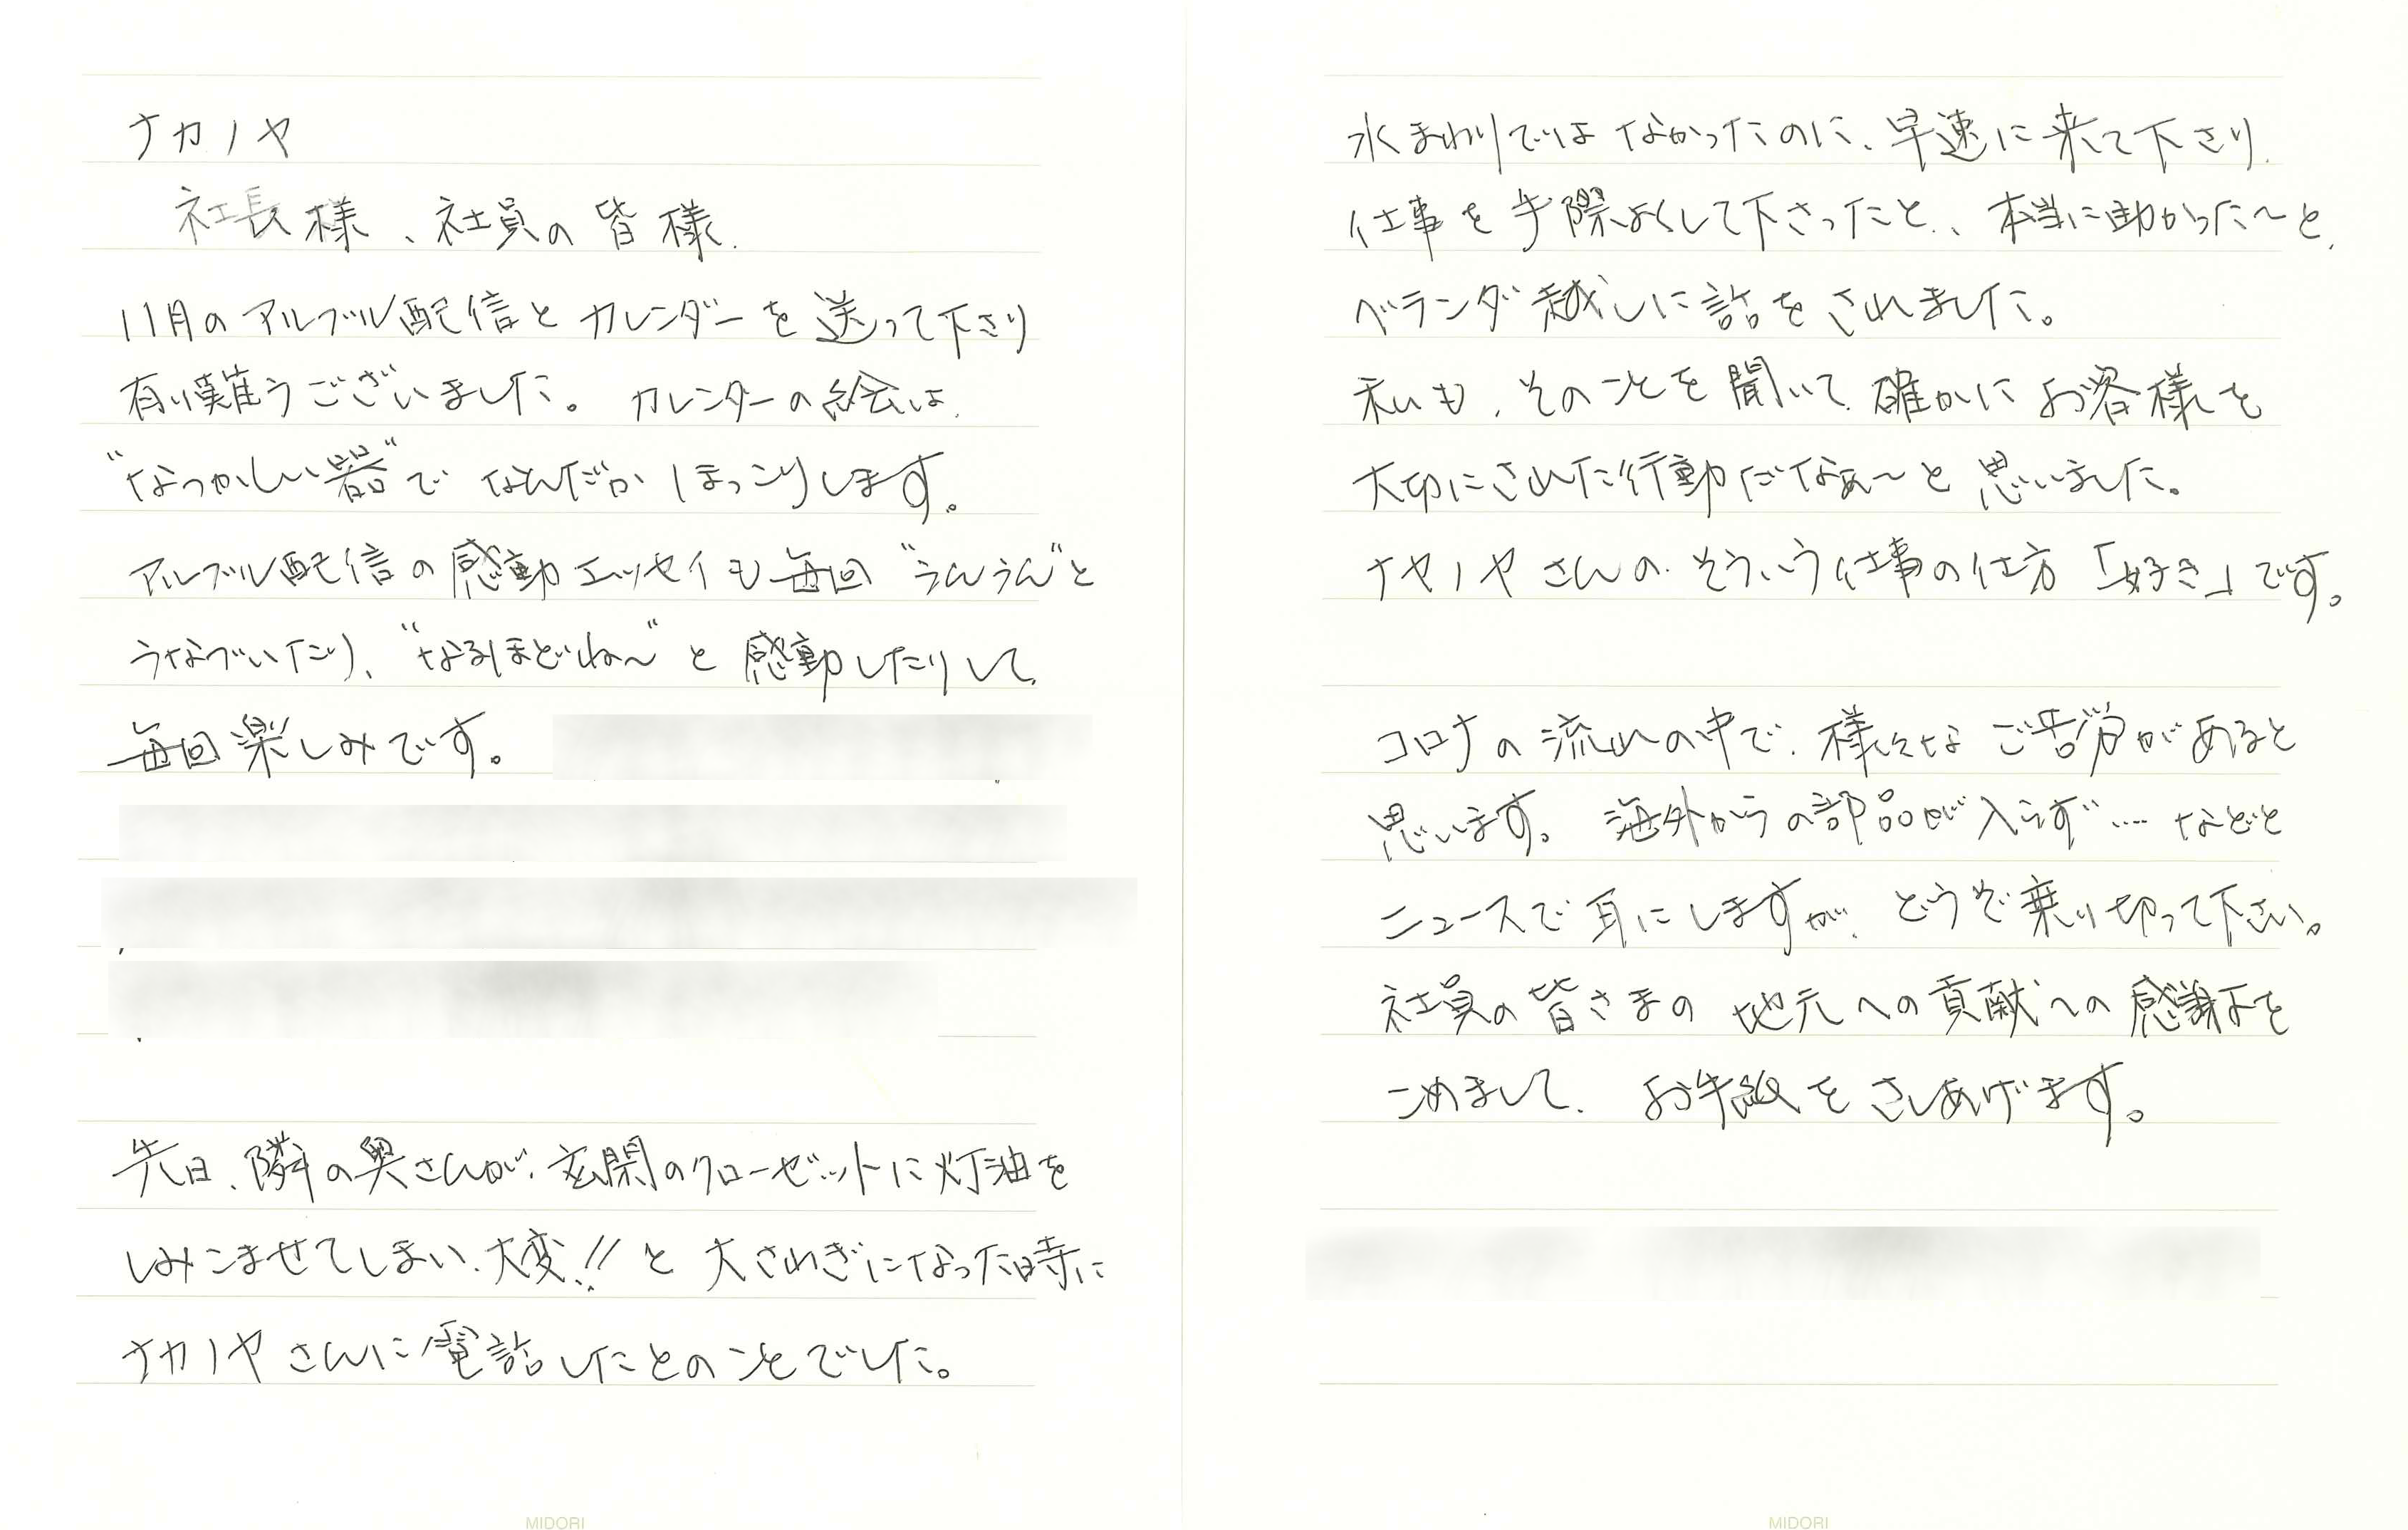 ナカノヤ
社長様、社員の皆様
11月のアルブル配信とカレンダーを送って下さり
有り難うございました。カレンダーの絵は、
“なつかしい器”でなんだかほっこりします。
アルブル配信の感動エッセイも毎回“うんうん”と
うなづいたり、“なるほどね～”と感動したりして
毎回楽しみです。
先日、隣の奥さんが、玄関のクローゼットに灯油を
しみこませてしまい、大変!!と大さわぎになった時に
ナカノヤさんに電話したとのことでした。
MIDORI
水まわりではなかったのに、早速に来て下さり、
仕事を手際よくして下さったこと、、本当に助かった～と、
ベランダ越しに話をされました。
私も、そのことを聞いて、確かにお客様を
大切にされた行動だなぁ～と思いました。
ナヤノヤさんの、そういう仕事の仕方「好き」です。
コロナの流れの中で、様々なご苦労があると
思います。海外からの部品が入らず…などと
ニュースで耳にしますが、どうぞ乗り切って下さい。
社員の皆さまの地元への貢献への感謝を
こめまして、お手紙をさしあげます。
MIDORI